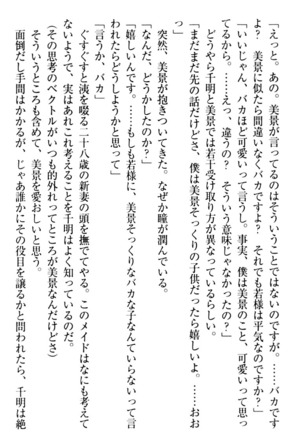 「えっと。あの。美景が言いたいのはそういうことではないのですが。……バカで
すよ？　美景に似たら間違いなくバカですよ？　それでも若様は平気なのですか？」
「いいじゃん、バカほど可愛いって言うし。事実、僕は美景のこと、可愛いって思っ
てるから。……えっ、違うの？　そういう意味じゃなかったの？」
　どうやら千明と美景では若干受け取り方が異なっているらしい。
「まだまだ先の話だけどさ、僕は美景そっくりの子供だったら嬉しいよ。……おお
っ」
　突然、美景が抱きついてきた。なぜか瞳が潤んでいる。
「なんだ、どうかしたのか？」
「嬉しいんです。……もしも若様に、美景そっくりなバカな子なんていらないって言
われたらどうしようかと思って」
「言うか、バカ」
　ぐすぐすと洟を啜る二十八歳の新妻の頭を撫でてやる。このメイドはなにも考えて
ないようで、実はあれこれ考えることを千明はよく知っているのだ。
（その思考のベクトルがいつも的外れってところが美景なんだけどさ）
　そういうところも含めて、美景を愛おしいと思う。
　面倒だし手間はかかるが、じゃあ誰かにその役目を譲るかと問われたら、千明は絶